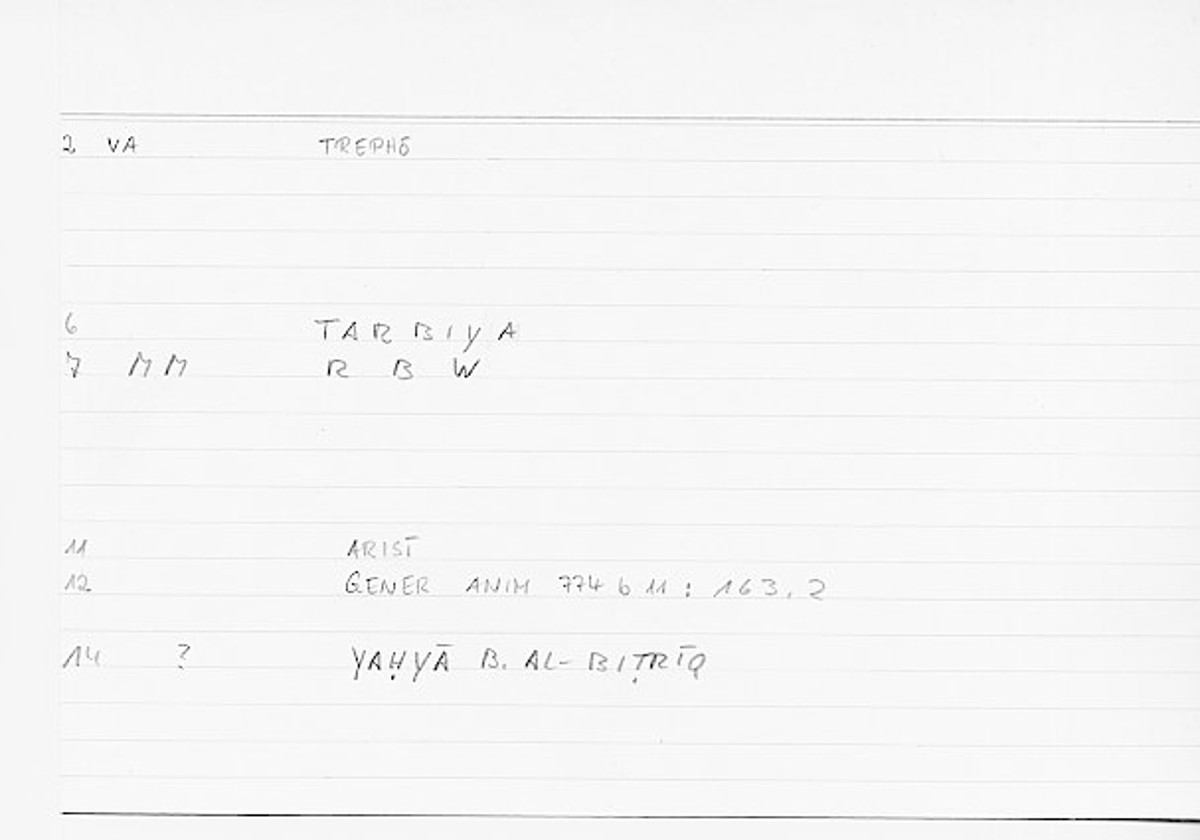 2 VA TREPHŌ
6 TARBIYA
7 MM R B W
11 ARIST
12 GENER ANIM 774 b 11 : 163, 2
14 ? YAḤYĀ B. AL-BIṬRĪQ